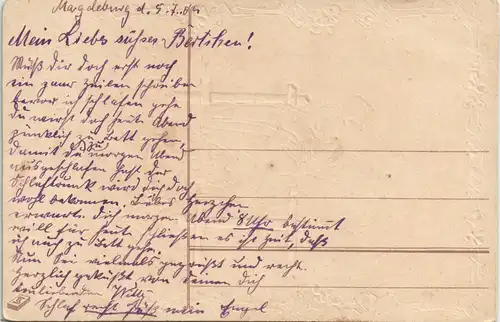 Magdeburg d. 5.7.
Mein Liebes süsses Bertchen!
Muß dir doch erst noch
ein paar Zeilen schreiben
bevor ich schlafen gehe
du wirst doch heute Abend
pünklich zu Bett gehen
damit du morgen Abend
ausgeschlafen hast der
Schlaftrunk wird dich doch
wohl bekommen. Liebes Herzchen
erwarte dich morgen Abend 8 Uhr bestimmt
will für heute schließen es ist Zeit, daß
ich auch zu Bett gehe.
Nun sei vielmals gegrüßt und recht
herzlich geküßt von deinen dich
Willy
Schlaf recht süß mein Engel